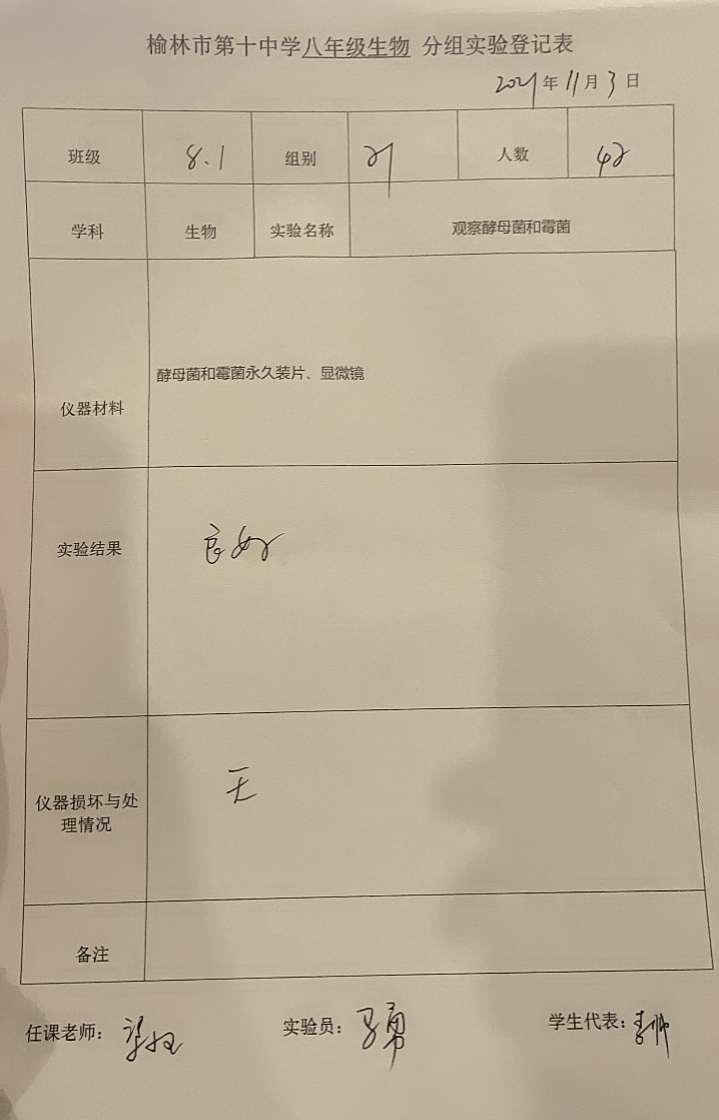 榆林市第十中学八年级生物 分组实验登记表
2021年11月3日
班级 8.1 组别 21 人数 42
学科 生物 实验名称 观察酵母菌和霉菌
仪器材料 酵母菌和霉菌永久装片、显微镜
实验结果 良好
仪器损坏与处理情况 无
备注
任课老师: 实验员: 马勇 学生代表: